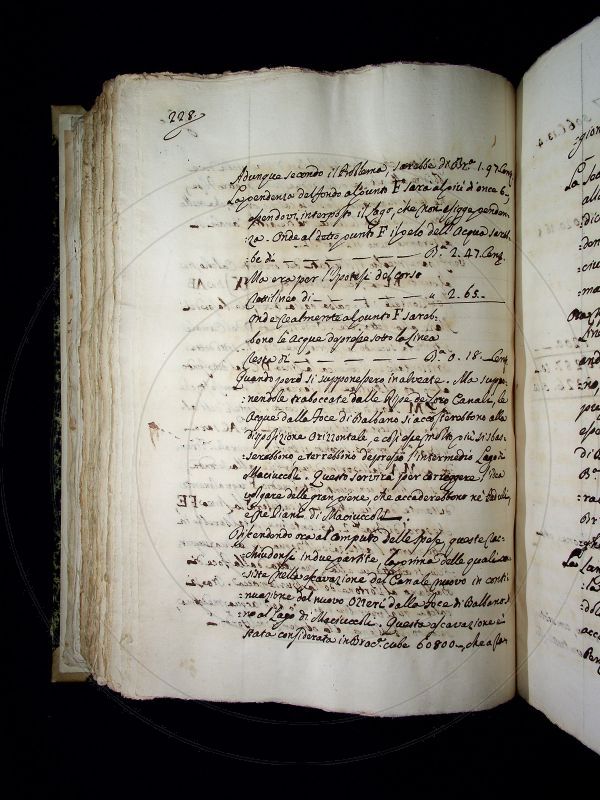 228.
Adunque secondo il Problema, sarebbe di Br.ª 1.97. Cenq.
La pendenza del fondo al punto F sarà al più d'once 6,
essendovi interposto il Lago, che non esigge penden-
-za. Onde al detto punto F il pelo dell'Acqua sareb-
-be di — — — — — Bª 2.47. Cenq.
Ma era per l'Ipotesi del corso
Rettilineo di — — — — " 2.65.
Onde realmente al punto F sareb-
-bono le Acque depresse sotto la Linea
Retta di — — — — — Bª 0.18. Cenq.
Quando però si supponessero inalveate. Ma suppo-
-nendole traboccate dalle Ripe de loro Canali, le
Acque dalla Foce di Balbano si accosterebbono alla
disposizione Orizzontale, e così esse molto più si sbas-
-serebbono e terrebbono depresso l'intermedio Lago di
Maciuccoli. Questo servirà per correggere l'idea
volgare delle gran piene, che accaderebbono ne Paduli,
e ne Piani di Maciuccoli.
Discendendo ora al computo delle Spese, queste rac-
-chiudonsi in due partite, la prima delle quali con-
-siste nella escavazione del Canale nuovo in conti-
-nuazione del nuovo Ozzeri dalla Foce di Balbano
sino al Lago di Maciuccoli. Questa escavazione è
stata considerata in Bracª cube 60800., che a ra-